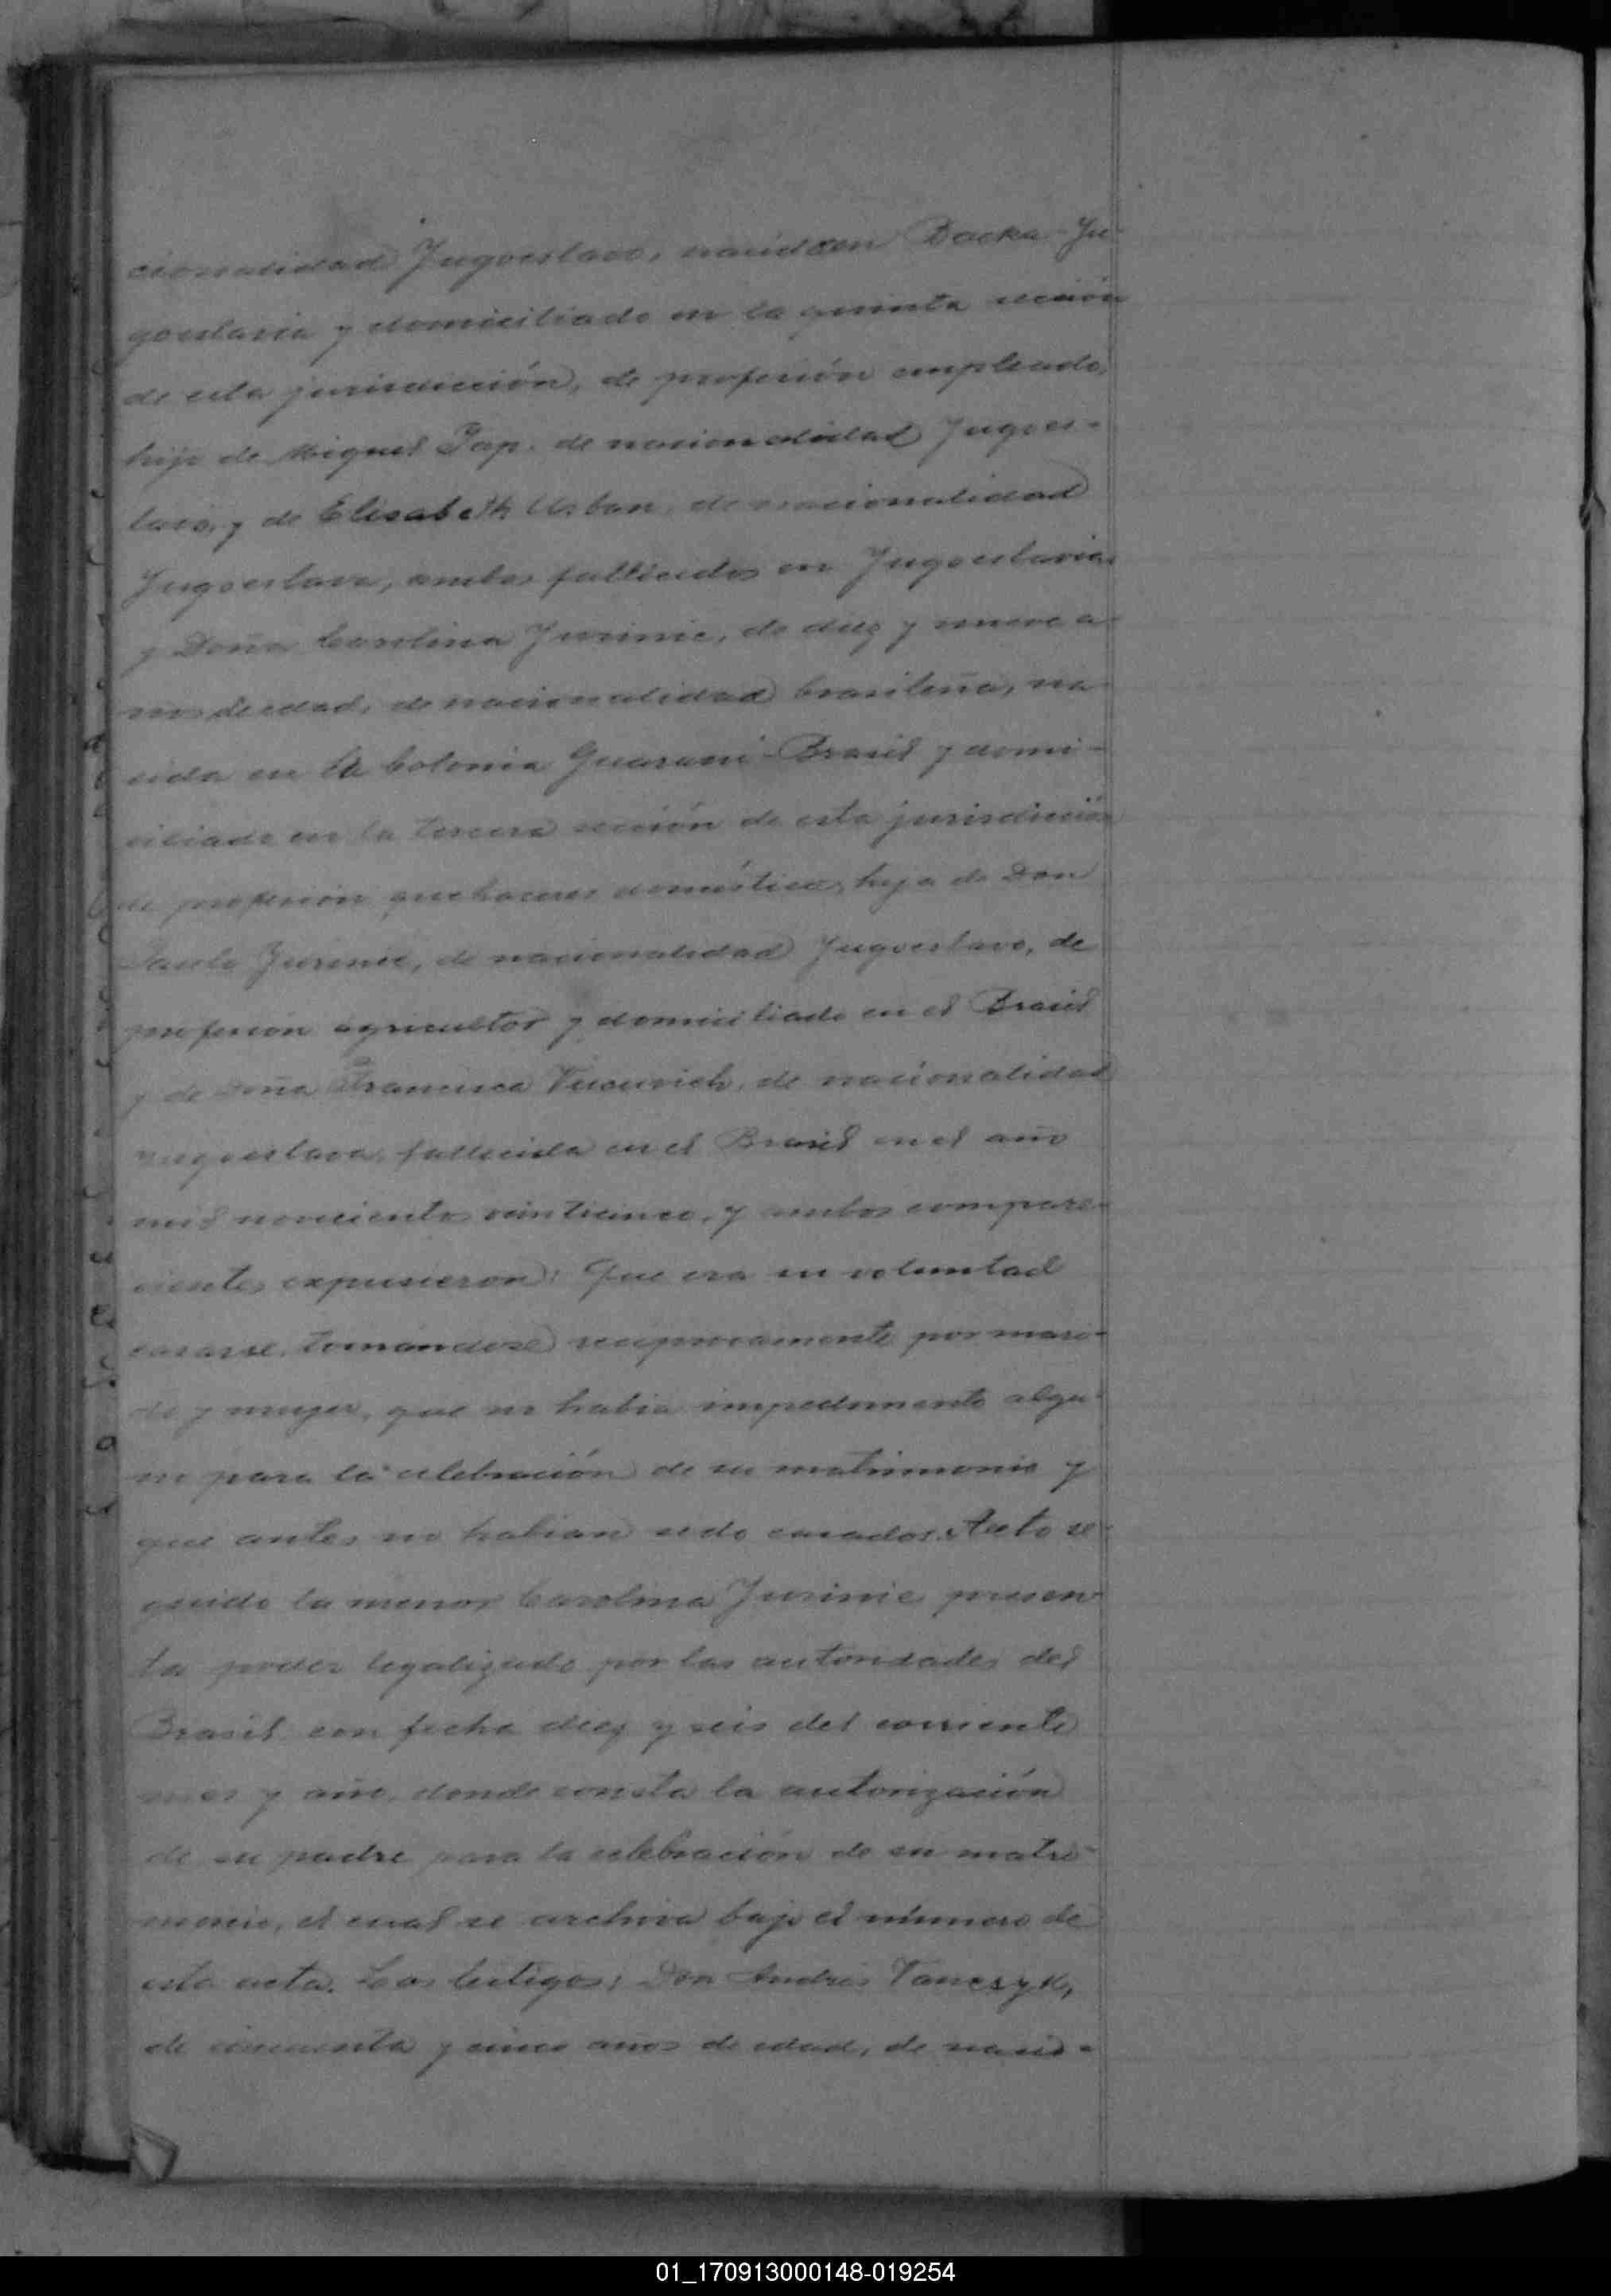 cionalidad Jugoeslavo, nacido en Backa-Ju-
goeslavia y domiciliado en la quinta sección
de esta jurisdicción, de profesión empleado,
hijo de Miguel Pap. de nacionalidad Jugoes-
lavo, y de Elisabeth Urban, de nacionalidad
Jugoeslava, ambos fallecidos en Jugoeslavia
y Doña Carolina Jurinic, de diez y nueve a-
ños de edad, de nacionalidad brasileña, na-
cida en la Colonia Guarani-Brasil y domi-
ciliada en la tercera sección de esta jurisdicción
de profesión quehaceres domésticos, hija de Don
Paulo Jurinic, de nacionalidad Jugoeslavo, de
profesión agricultor y domiciliado en el Brasil
y de Doña Francisca Vucurvich, de nacionalidad
Jugoeslava, fallecida en el Brasil en el año
mil novecientos veinticinco, y ambos compare-
cientes expusieron: Que era su voluntad
casarse, tomandose reciprocamente por mari-
do y mujer, que no habia impedimento algu-
no para la celebración de su matrimonio y
que antes no habian sido casados. Acto se-
guido la menor Carolina Jurinic presen-
ta poder legalizado por las autoridades del
Brasil con fecha diez y seis del corriente
mes y año, donde consta la autorización
de su padre para la celebración de su matri-
monio, el cual se archiva bajo el número de
esta acta. Los testigos: Don Andrés Tanczyk,
de cincuenta y cinco años de edad, de nacio-
01_170913000148-019254